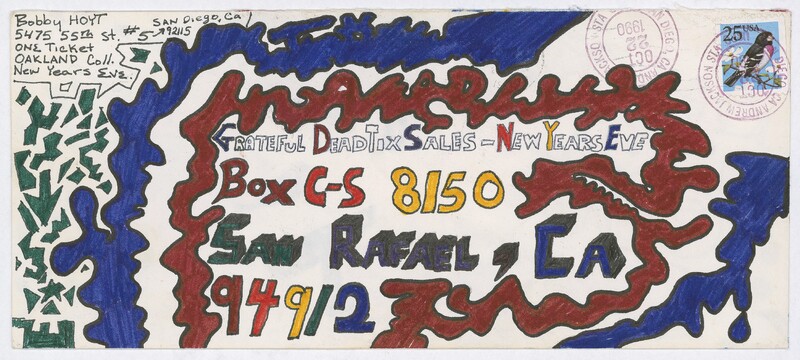 Bobby HOYT
5475 55TH St. #5
SAN DIEGO, Ca
92115
ONE Ticket
OAKLAND Coll.
New Years Eve.
25 USA
OCT
22
1990
GRATEFUL DEAD TIX SALES - NEW YEARS EVE
Box C-S 8150
SAN RAFAEL, CA
94912